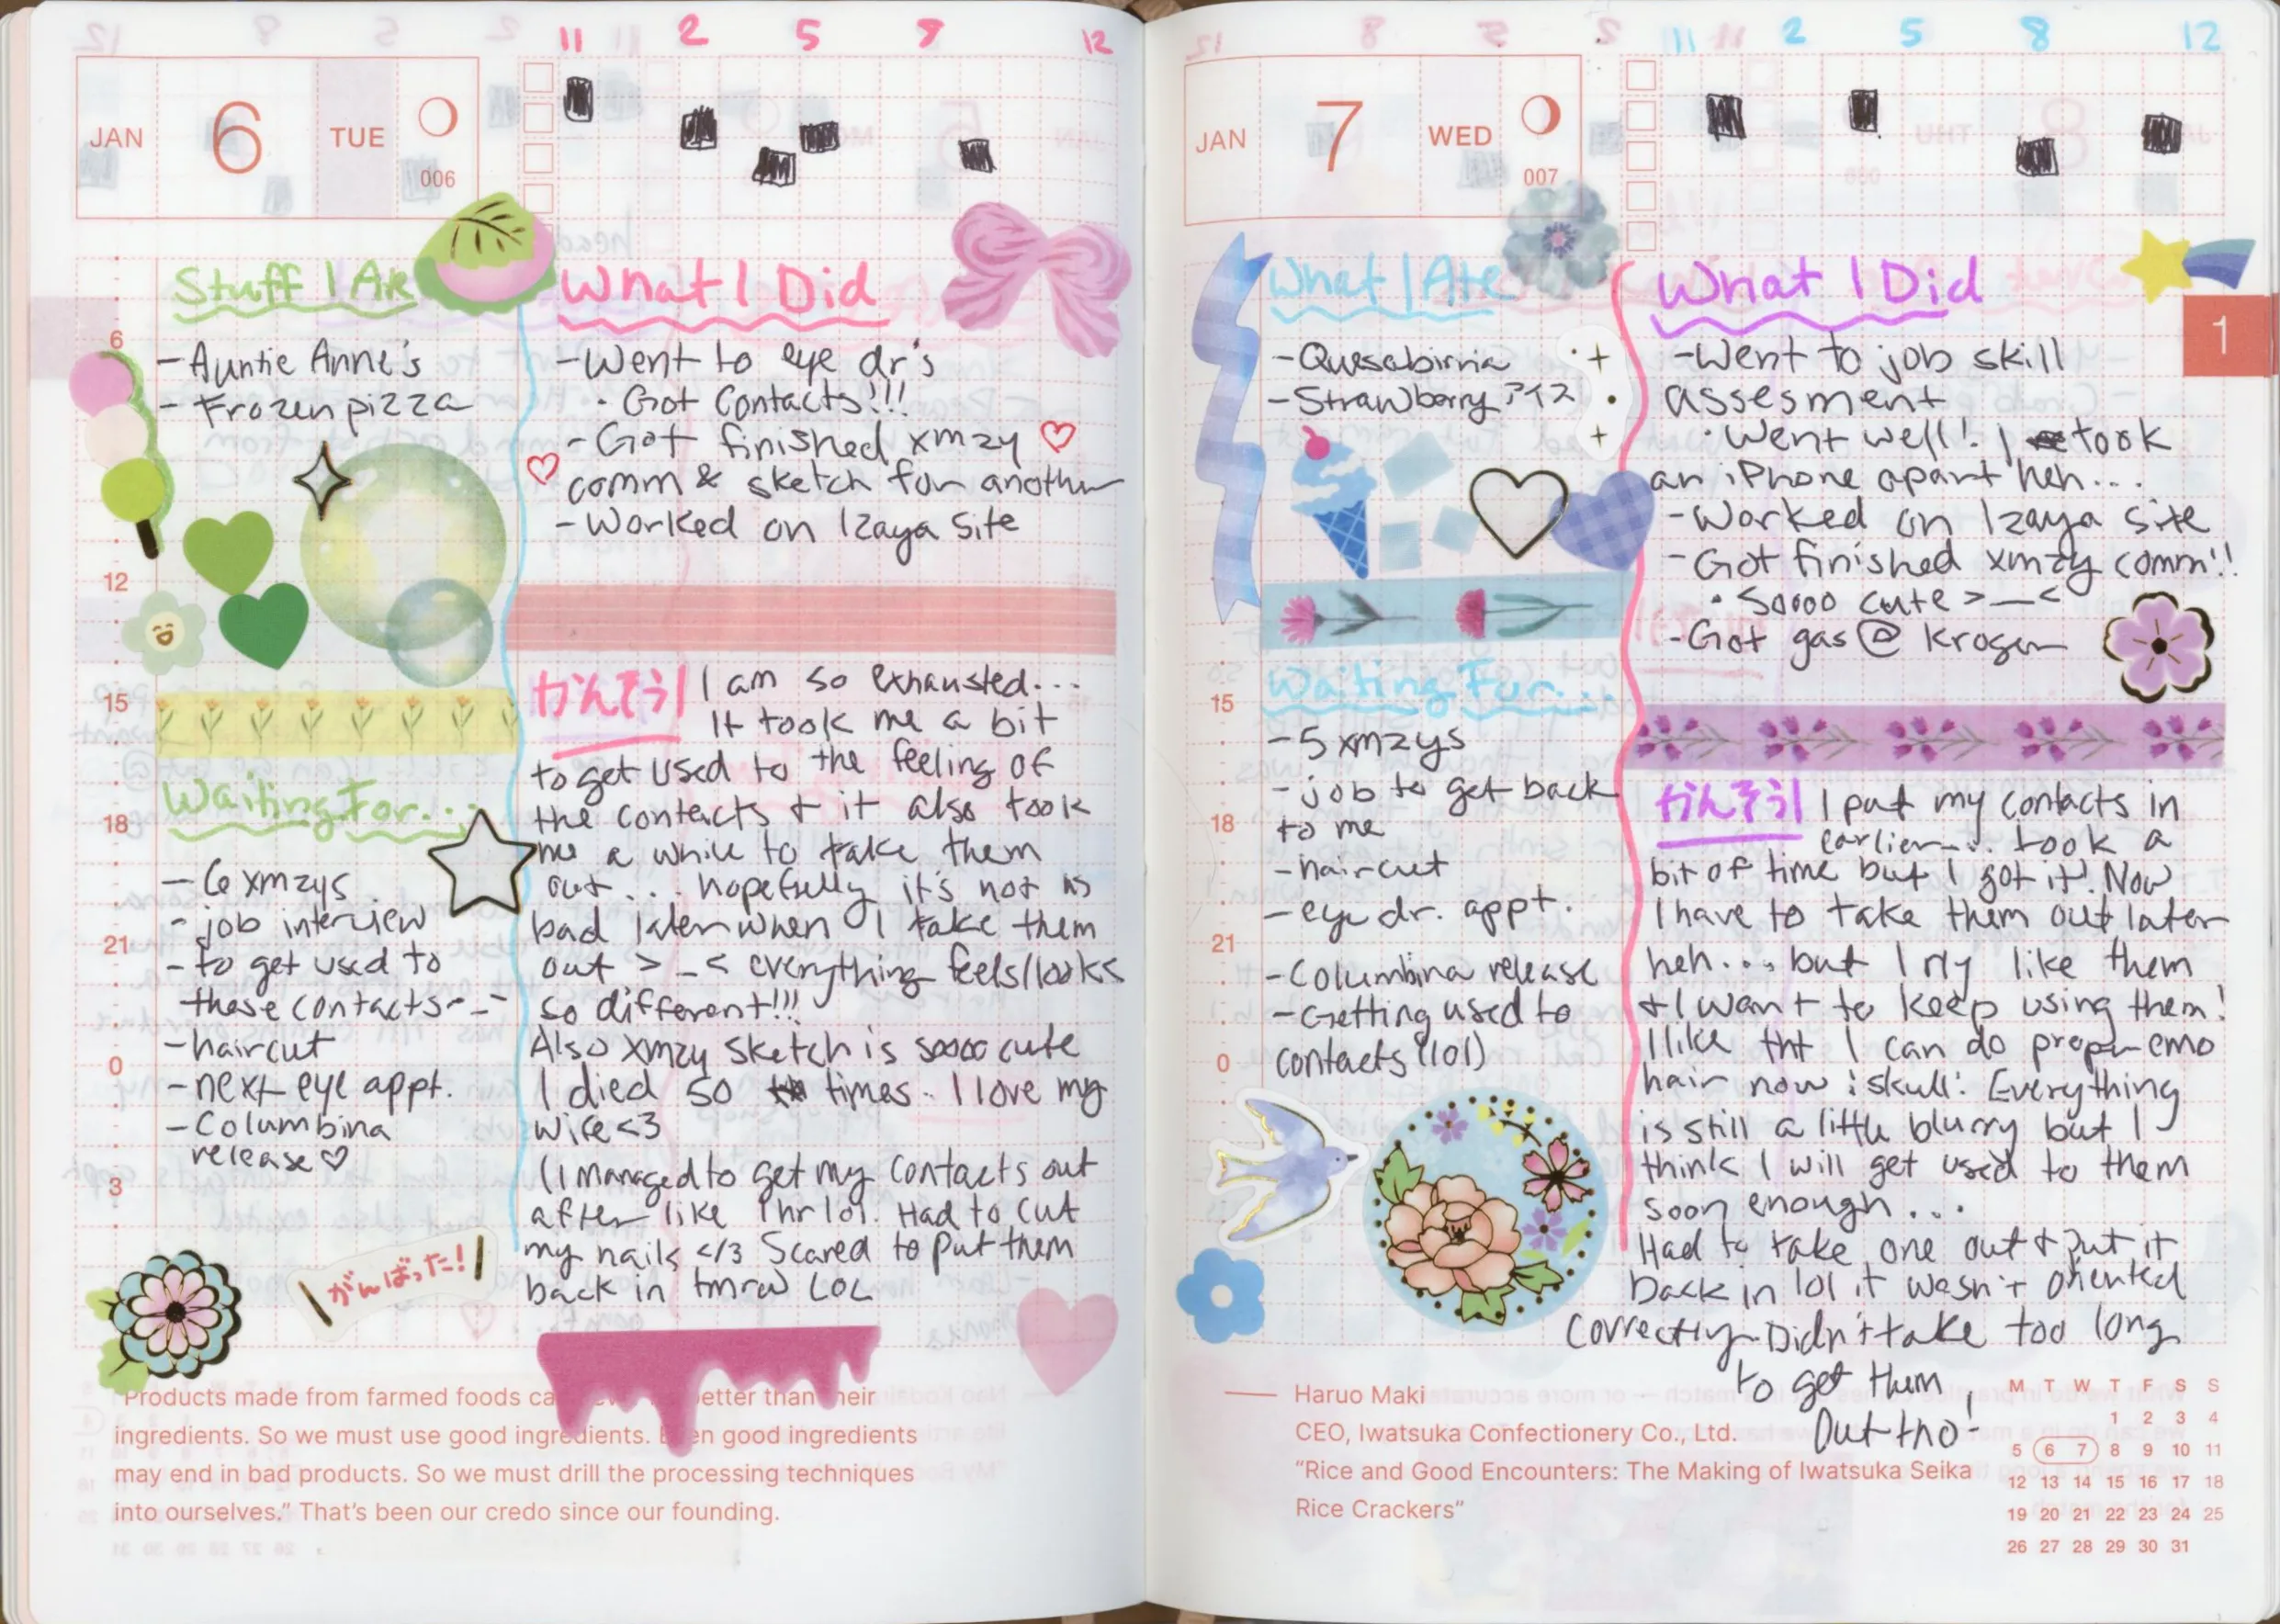 11 2 5 9 12
JAN 6 TUE
006
Stuff I Ate
- Auntie Anne's
- Frozen pizza
6
12
15
Waiting For...
18
- 6 xmzys
- job interview
21
- to get used to
these contacts -_-
- haircut
0
- next eye appt.
- Columbina
release ♡
3
がんばった!
What I Did
- Went to eye dr's
• Got Contacts!!!
- Got finished xmzy ♡
♡ comm & sketch for another
- Worked on Izaya Site
かんそう I am so exhausted...
It took me a bit
to get used to the feeling of
the contacts & it also took
me a while to take them
out... hopefully it's not as
bad later when I take them
out >_< everything feels/looks
so different!!!
Also xmzy sketch is soooo cute
I died 50 times. I love my
wife <3
(I managed to get my contacts out
after like 1hr lol. Had to cut
my nails </3 Scared to put them
back in tmrw LOL
"Products made from farmed foods ca better than their
ingredients. So we must use good ingredients. Even good ingredients
may end in bad products. So we must drill the processing techniques
into ourselves." That's been our credo since our founding.
11 2 5 8 12
JAN 7 WED
007
1
What I Ate
- Quesabirria
- Strawberry アイス
Waiting For...
15
- 5 xmzys
- job to get back
18
to me
- haircut
- eye dr. appt.
21
- Columbina release
- Getting used to
0
contacts (lol)
What I Did
- Went to job skill
assesment
• Went well! I took
an iPhone apart heh...
- Worked on Izaya site
- Got finished xmzy comm!!
• Soooo cute >_<
- Got gas @ Kroger
かんそう I put my contacts in
earlier... took a
bit of time but I got it! Now
I have to take them out later
heh... but I rly like them
& I want to keep using them!
I like tht I can do proper emo
hair now :skull: Everything
is still a little blurry but I
think I will get used to them
soon enough...
Had to take one out & put it
back in lol it wasn't oriented
correctly. Didn't take too long
to get them
out tho!
Haruo Maki
CEO, Iwatsuka Confectionery Co., Ltd.
"Rice and Good Encounters: The Making of Iwatsuka Seika
Rice Crackers"
M T W T F S S
1 2 3 4
5 6 7 8 9 10 11
12 13 14 15 16 17 18
19 20 21 22 23 24 25
26 27 28 29 30 31